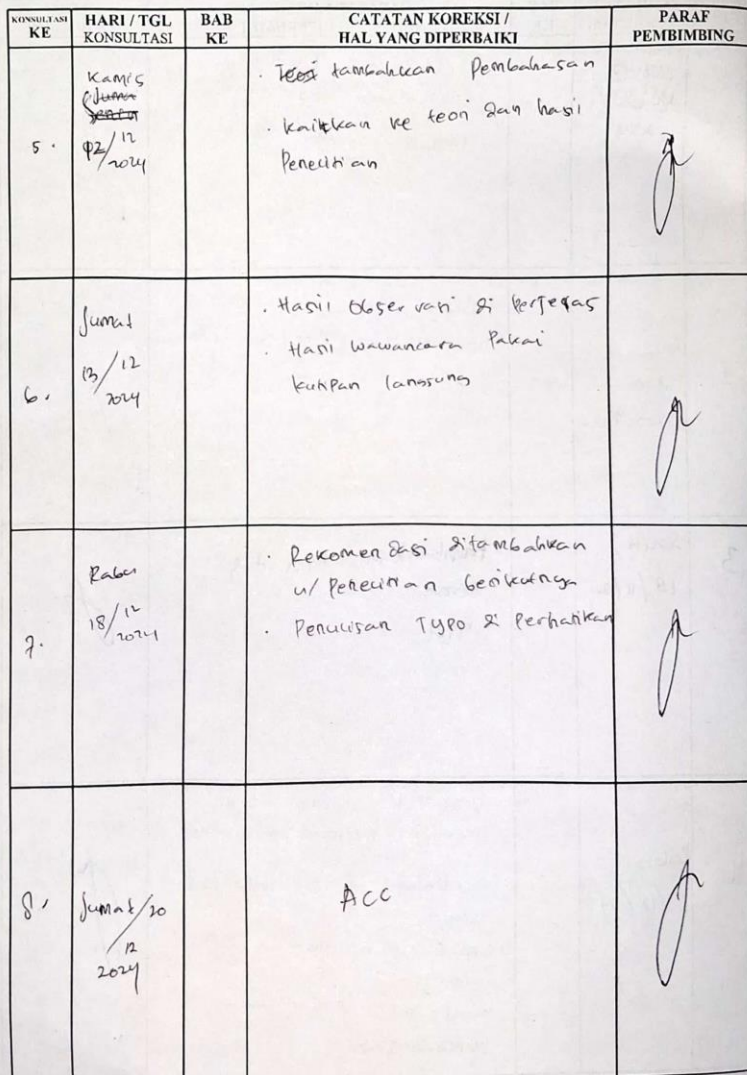 KONSULTASI KE HARI / TGL KONSULTASI BAB KE CATATAN KOREKSI / HAL YANG DIPERBAIKI PARAF PEMBIMBING
5. Kamis
12/12
2024
tambahkan Pembahasan
kaitkan ke teori dan hasil
Penelitian
6. Jumat
13/12
2024
Hasil Observasi di perjegas
Hasil wawancara Pakai
kutipan langsung
7. Rabu
18/12
2024
Rekomendasi ditambahkan
u/ Penelitian berikutnya
Penulisan Typo di Perhatikan
8. Jumat/20
12
2024
ACC